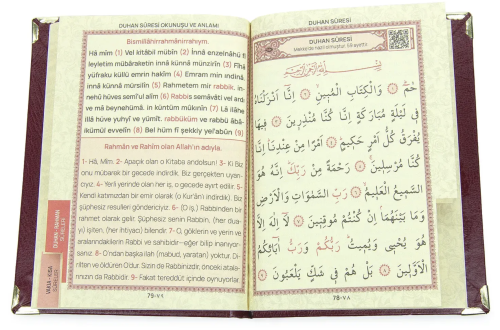 DUHAN SÛRESİ OKUNUŞU VE ANLAMI
Bismillâhirrahmânirrahıym.
Hâ mîm (1) Vel kitâbil mübîn (2) İnnâ enzelnâhü fî
leyletim mübâraketin innâ künnâ münzirîn (3) Fîhâ
yüfraku küllü emrin hakîm (4) Emram min ındinâ,
innâ künnâ mürsilîn (5) Rahmetem mir rabbik, in-
nehû hüves semî'ul alîm (6) Rabbis semâvâti vel ard
ve mâ beynehümâ, in küntüm mûkınîn (7) Lâ ilâhe
illâ hüve yuhyî ve yümît, rabbüküm ve rabbü âbâ-
ikümül evvelîn (8) Bel hüm fî şekkiy yel'abûn (9)
Rahmân ve Rahîm olan Allah'ın adıyla.
1- Hâ, Mîm. 2- Apaçık olan o Kitaba andolsun! 3- Ki Biz
onu mübarek bir gecede indirdik. Biz gerçekten uyarı-
cıyız. 4- Yerli yerinde olan her iş, o gecede ayırt edilir. 5-
Kendi katımızdan bir emir olarak (o Kur'ânı indirdik). Biz
şüphesiz resulleri göndericiyiz. 6- (O iş,) Rabbinden bir
rahmet olarak gelir. Şüphesiz senin Rabbin, (her dua-
yı) işiten, (her ihtiyacı) bilendir. 7- O, göklerin ve yerin ve
aralarındakilerin Rabbi ve sahibidir-eğer bilip inanıyor-
sanız. 8- O'ndan başka ilah (mabud, yaratan) yoktur. Di-
rilten ve öldüren O'dur. Sizin de Rabbinizdir, önceki atala-
rınızın da Rabbidir. 9- Fakat tereddüt içinde oynuyorlar.
75-٧٥
DUHAN SÛRESİ
DUHAN SÛRESİ
حٰمٓ ﴿١﴾ وَالْكِتَابِ الْمُبٖينِ ﴿٢﴾ اِنَّٓا اَنْزَلْنَاهُ
فٖي لَيْلَةٍ مُبَارَكَةٍ اِنَّا كُنَّا مُنْذِرٖينَ ﴿٣﴾ فٖيهَا
يُفْرَقُ كُلُّ اَمْرٍ حَكٖيمٍ ﴿٤﴾ اَمْرًا مِنْ عِنْدِنَا اِنَّا
كُنَّا مُرْسِلٖينَ ﴿٥﴾ رَحْمَةً مِنْ رَبِّكَ اِنَّهُ هُوَ
السَّمٖيعُ الْعَلٖيمُ ﴿٦﴾ رَبِّ السَّمٰوَاتِ وَالْاَرْضِ
وَمَا بَيْنَهُمَا اِنْ كُنْتُمْ مُوقِنٖينَ ﴿٧﴾ لَٓا اِلٰهَ اِلَّا
هُوَ يُحْيٖي وَيُمٖيتُ رَبُّكُمْ وَرَبُّ اٰبَٓائِكُمُ
الْاَوَّلٖينَ ﴿٨﴾ بَلْ هُمْ فٖي شَكٍّ يَلْعَبُونَ ﴿٩﴾
78-٧٨